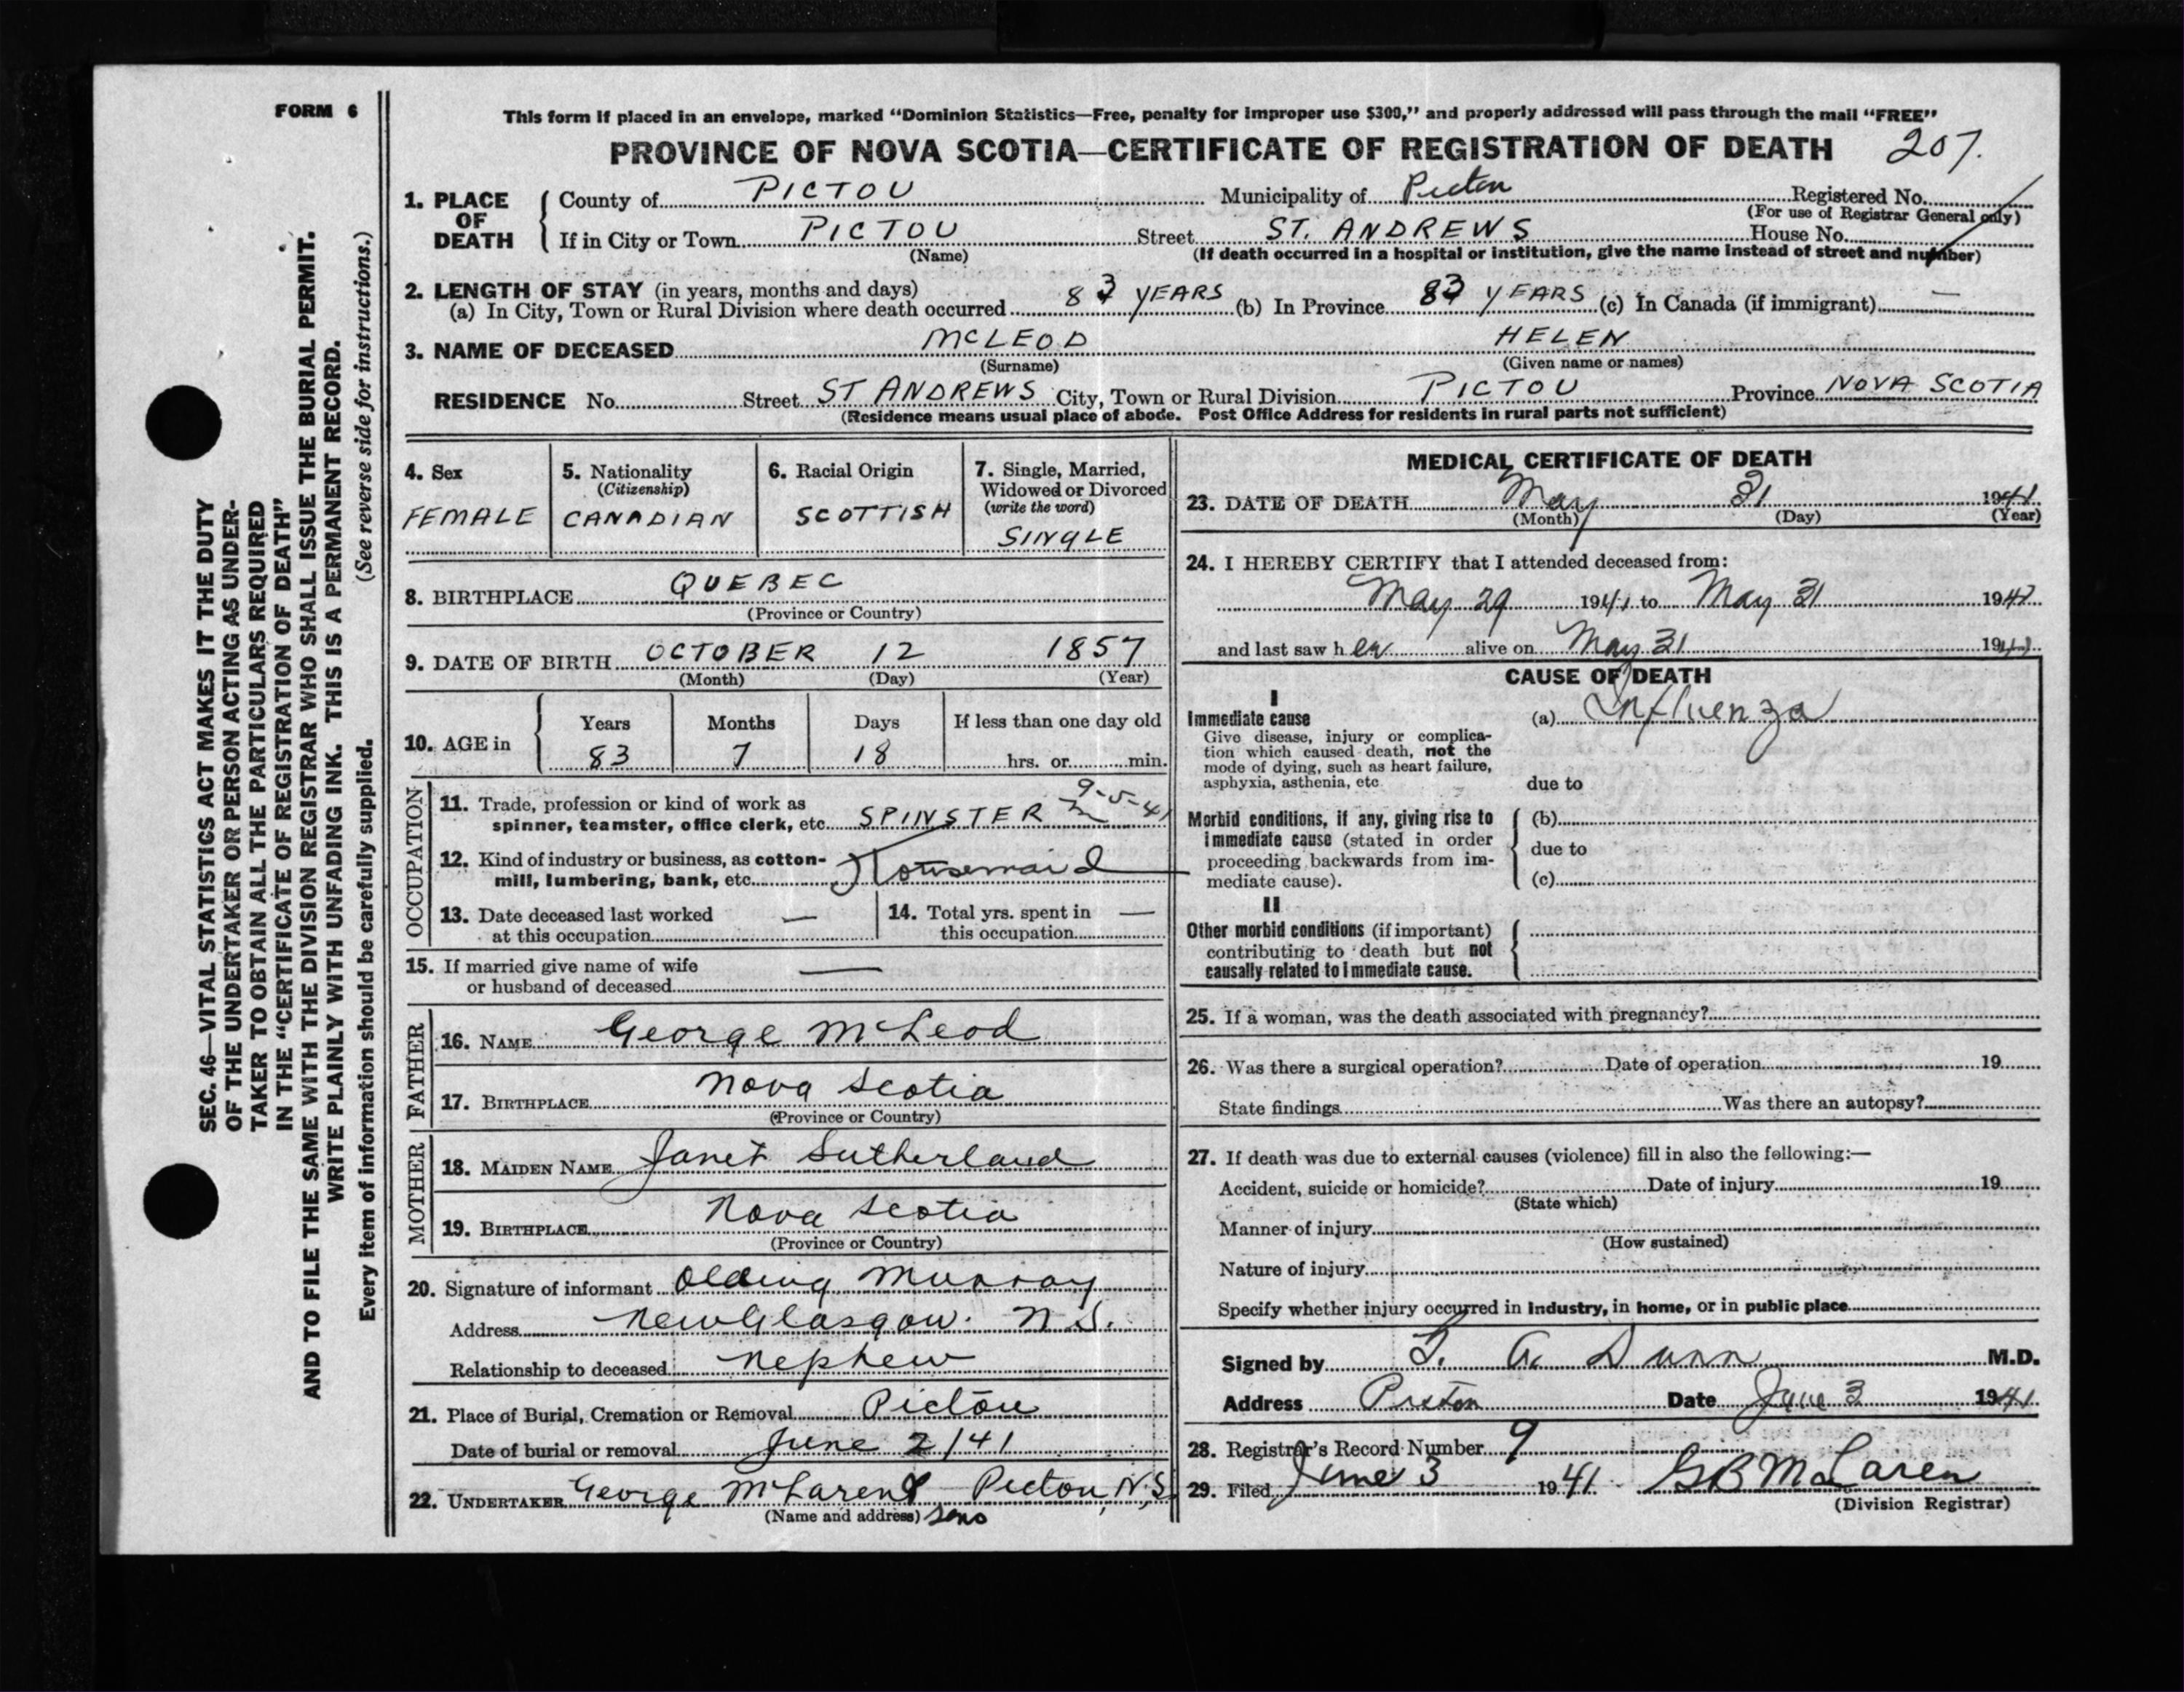 FORM 6
SEC. 46—VITAL STATISTICS ACT MAKES IT THE DUTY
OF THE UNDERTAKER OR PERSON ACTING AS UNDER-
TAKER TO OBTAIN ALL THE PARTICULARS REQUIRED
IN THE "CERTIFICATE OF REGISTRATION OF DEATH"
AND TO FILE THE SAME WITH THE DIVISION REGISTRAR WHO SHALL ISSUE THE BURIAL PERMIT.
WRITE PLAINLY WITH UNFADING INK. THIS IS A PERMANENT RECORD.
Every item of information should be carefully supplied. (See reverse side for instructions.)
This form if placed in an envelope, marked "Dominion Statistics—Free, penalty for improper use $300," and properly addressed will pass through the mail "FREE"
PROVINCE OF NOVA SCOTIA—CERTIFICATE OF REGISTRATION OF DEATH 207.
1. PLACE OF DEATH County of PICTOU Municipality of Pictou Registered No.
(For use of Registrar General only)
If in City or Town PICTOU Street ST. ANDREWS House No.
(Name) (If death occurred in a hospital or institution, give the name instead of street and number)
2. LENGTH OF STAY (in years, months and days)
(a) In City, Town or Rural Division where death occurred 83 YEARS (b) In Province 83 YEARS (c) In Canada (if immigrant) —
3. NAME OF DECEASED MCLEOD HELEN
(Surname) (Given name or names)
RESIDENCE No. Street ST ANDREWS City, Town or Rural Division PICTOU Province NOVA SCOTIA
(Residence means usual place of abode. Post Office Address for residents in rural parts not sufficient)
4. Sex
FEMALE
5. Nationality
(Citizenship)
CANADIAN
6. Racial Origin
SCOTTISH
7. Single, Married,
Widowed or Divorced
(write the word)
SINGLE
8. BIRTHPLACE QUEBEC
(Province or Country)
9. DATE OF BIRTH OCTOBER 12 1857
(Month) (Day) (Year)
10. AGE in Years Months Days If less than one day old
83 7 18 hrs. or min.
OCCUPATION
11. Trade, profession or kind of work as
spinner, teamster, office clerk, etc. SPINSTER 9-5-41
12. Kind of industry or business, as cotton-
mill, lumbering, bank, etc. Housemaid
13. Date deceased last worked
at this occupation —
14. Total yrs. spent in
this occupation —
15. If married give name of wife
or husband of deceased —
FATHER
16. NAME George McLeod
17. BIRTHPLACE Nova Scotia
(Province or Country)
MOTHER
18. MAIDEN NAME Janet Sutherland
19. BIRTHPLACE Nova Scotia
(Province or Country)
20. Signature of informant Olding Murray
Address New Glasgow. N S.
Relationship to deceased nephew
21. Place of Burial, Cremation or Removal Pictou
Date of burial or removal June 2/41
22. UNDERTAKER George McLaren & Pictou, N.S.
(Name and address) Sons
MEDICAL CERTIFICATE OF DEATH
23. DATE OF DEATH May 31 1941
(Month) (Day) (Year)
24. I HEREBY CERTIFY that I attended deceased from:
May 29 1941 to May 31 194
and last saw her alive on May 31 194
CAUSE OF DEATH
I
Immediate cause
Give disease, injury or complica-
tion which caused death, not the
mode of dying, such as heart failure,
asphyxia, asthenia, etc
(a) Influenza
due to
Morbid conditions, if any, giving rise to
immediate cause (stated in order
proceeding backwards from im-
mediate cause).
(b)
due to
(c)
II
Other morbid conditions (if important)
contributing to death but not
causally related to immediate cause.
25. If a woman, was the death associated with pregnancy?
26. Was there a surgical operation? Date of operation 19
State findings Was there an autopsy?
27. If death was due to external causes (violence) fill in also the following:—
Accident, suicide or homicide? Date of injury 19
(State which)
Manner of injury
(How sustained)
Nature of injury
Specify whether injury occurred in industry, in home, or in public place
Signed by A. Dunn M.D.
Address Pictou Date June 3 1941
28. Registrar's Record Number 9
29. Filed June 3 1941 G B McLaren
(Division Registrar)